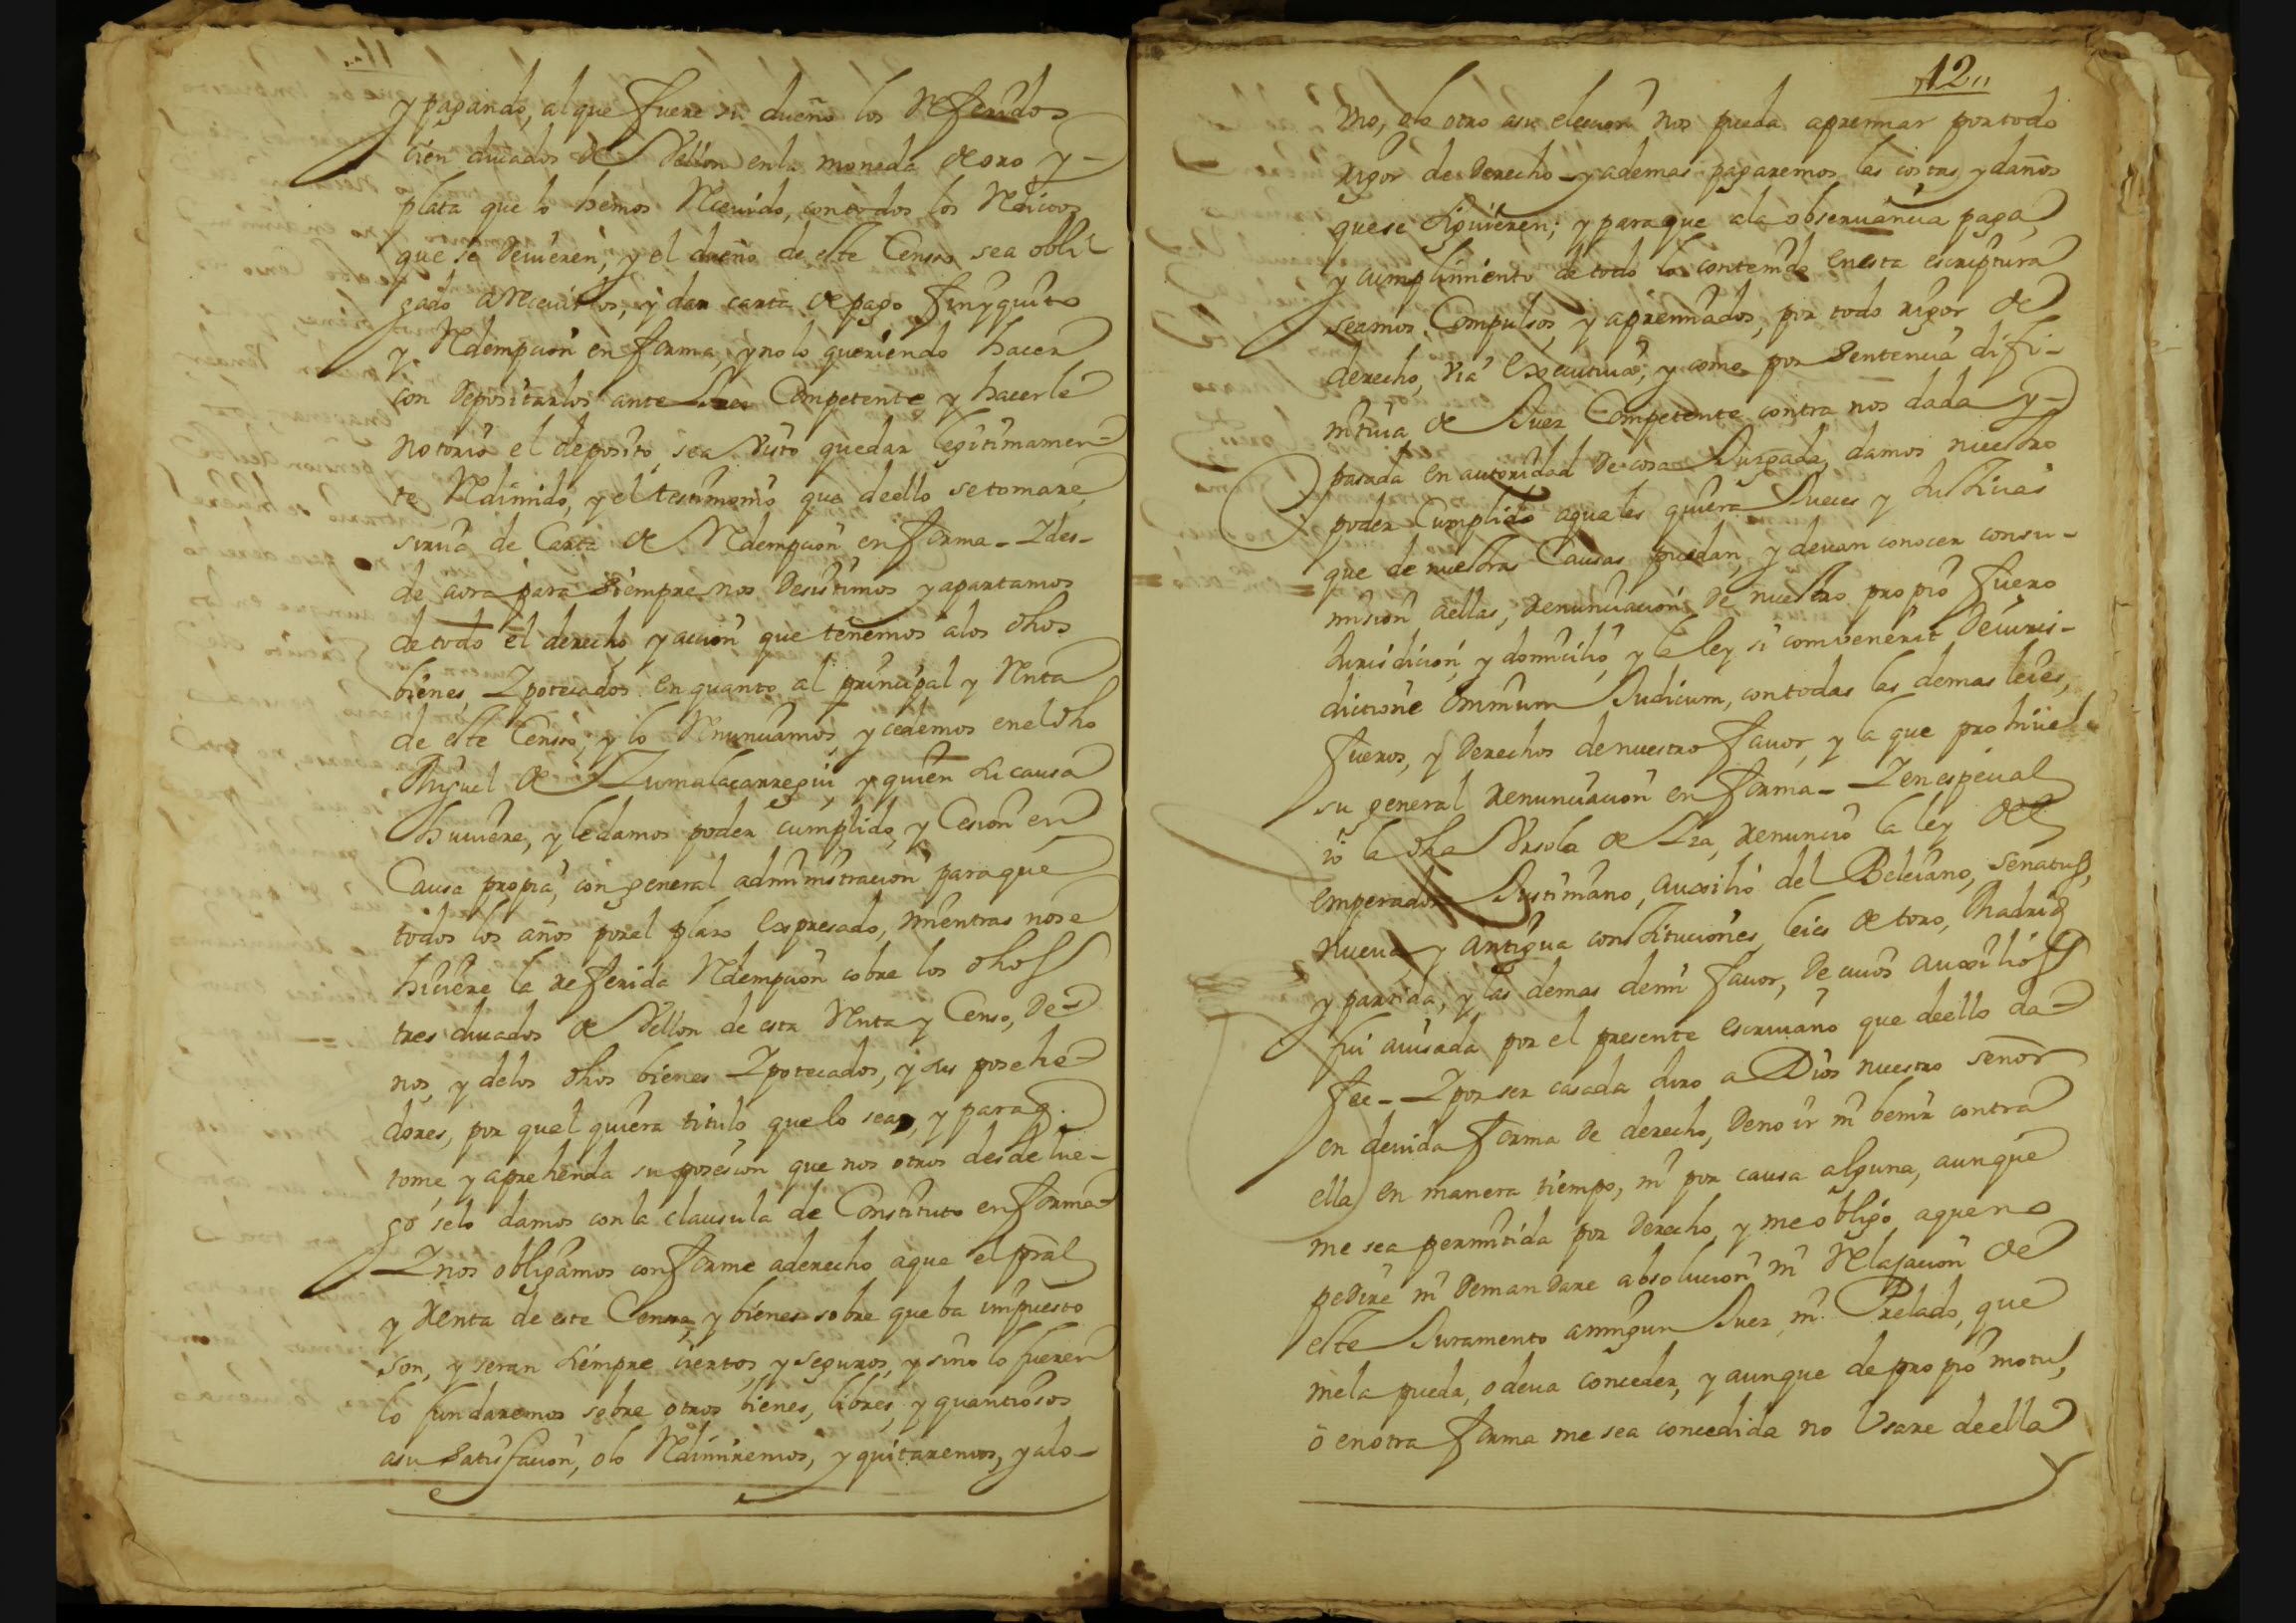 y pagando, al que fuere su dueño los Referidos
cien ducados de Vellon en la moneda de oro y
plata que lo hemos Receuido, con todos los Redictos
que se deuieren, y el dueño de este Censo sea obli
gado a Receuirlos, y dar carta de pago finyquito
y Redempcion en forma, y no lo queriendo hacer
con depositarlos ante Juez Competente y hacerle
notorio el deposito, sea visto quedar legitimamen
te Redimido, y el testimonio que de ello se tomare
sirua de Carta de Redempcion en forma - I des-
de aora para siempre nos desistimos y apartamos
de todo el derecho y accion que tenemos a los dhos
bienes Ipotecados en quanto al principal y Renta
de este Censo, y lo Renunciamos, y cedemos en el dho
Miguel de Zumalacarregui, y quien su causa
huuiere, y le damos poder cumplido, y Cesion en
Causa propia, con general administracion para que
todos los años por el plazo expresado, mientras no se
hiciere la referida Redempcion cobre los dhos
tres ducados de Vellon de esta Renta y Censo, de
nos, y de los dhos bienes Ipotecados, y sus posehe
dores, por qual quiera titulo que lo sean, y para q
tome, y aprehenda su posesion que nos otros desde lue-
go selo damos con la clausula de Constituto en forma
I nos obligamos conforme a derecho a que el pral
y renta de este Censo, y bienes sobre que ba impuesto
son, y seran siempre ciertos, y seguros, y sino lo fueren
lo fundaremos sobre otros bienes, libres, y quantiosos
a su satisfacion, o lo Redimiremos, y quitaremos, y a lo-
12
vno, o lo otro a su eleccion nos pueda apremiar por todo
rigor de derecho y ademas pagaremos las costas, y daños
que se siguieren; y para que a la obseruancia paga,
y cumplimiento de todo lo contenido en esta escriptura
seamos Compulsos, y apremiados, por todo rigor de
derecho, via executiua, y como por sentencia difi-
nitiua de Juez Competente contra nos dada y
pasada en autoridad de cosa Juzgada, damos nuestro
poder Cumplido a quales quiera Jueces y Justicias
que de nuestras Causas puedan, y deuan conocer con su-
mision a ellas, renunciacion de nuestro propio fuero
Jurisdicion, y domicilio, y la ley si combenerit de iuris-
dictione omnium Judicum, con todas las demas leies,
fueros, y derechos de nuestro fauor, y la que prohiue
su general renunciacion en forma - I en especial
io la dha Vrsola de Iza, renuncio la ley del
emperador Justiniano, auxilio del Beleiano, senatus,
nueua y antigua constituciones, leies de toro, Madrid
y partida, y las demas de mi fauor, de cuios auxilios
fui auisada por el presente escriuano que de ello da
fee - I por ser casada Juro a Dios nuestro señor
en deuida forma de derecho, de no ir ni benir contra
ella en manera tiempo, ni por causa alguna, aunque
me sea permitida por derecho, y me obligo a que no
pedire ni demandare absolucion ni Relajacion de
este Juramento a ningun Juez, ni Prelado, que
me la pueda, o deua conceder, y aunque de propio motu,
o en otra forma me sea concedida no Vsare de ella